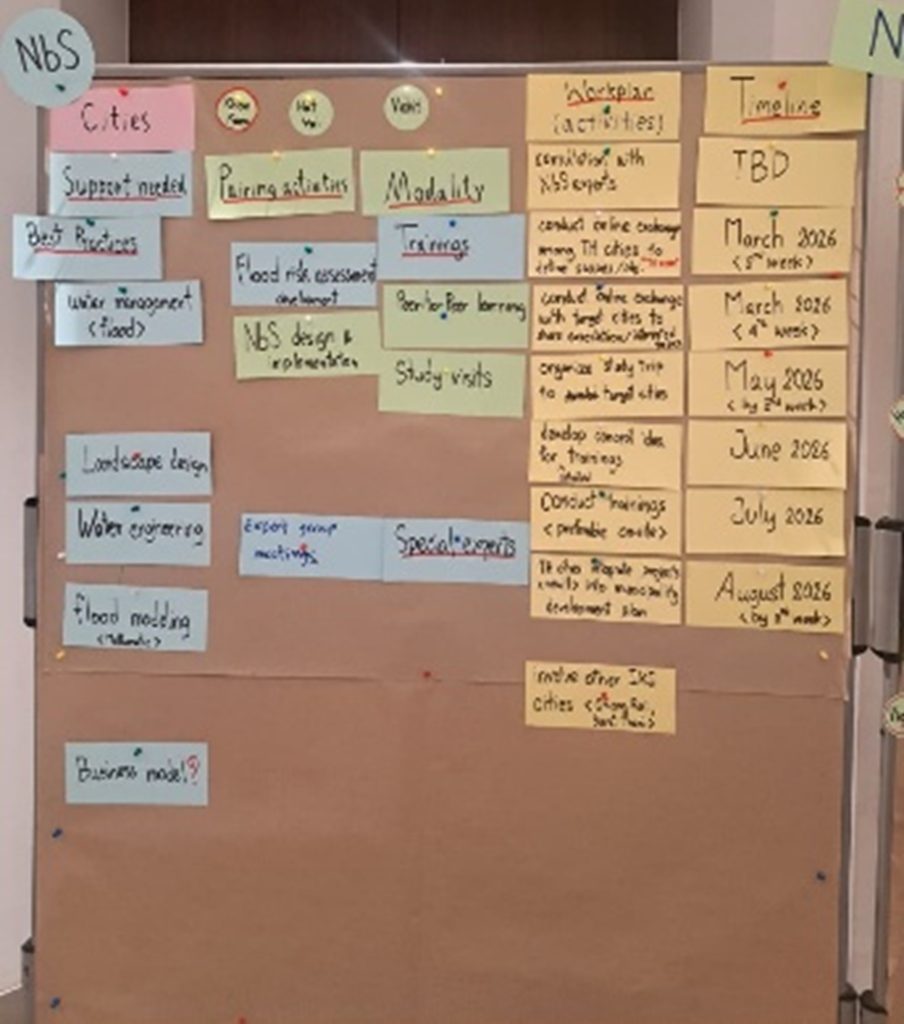 NbS
N
Cities
Hat Yai
Workplan
(activities)
Timeline
Support needed
Pairing activities
Modality
consultation with
NbS experts
TBD
Best Practices
Trainings
conduct online exchange
among TH cities to
March 2026
water management
<flood>
Flood risk assessment
Peer-to-Peer learning
conduct online exchange
with target cities to
March 2026
<4th week>
NbS design &
implementation
Study visits
organize study trip
to target cities
May 2026
<by 2nd week>
Landscape design
develop
for trainings
June 2026
Water engineering
Expert group
meetings
Special experts
Conduct trainings
July 2026
flood modeling
development plan
August 2026
involve other IKI
cities
Business model?